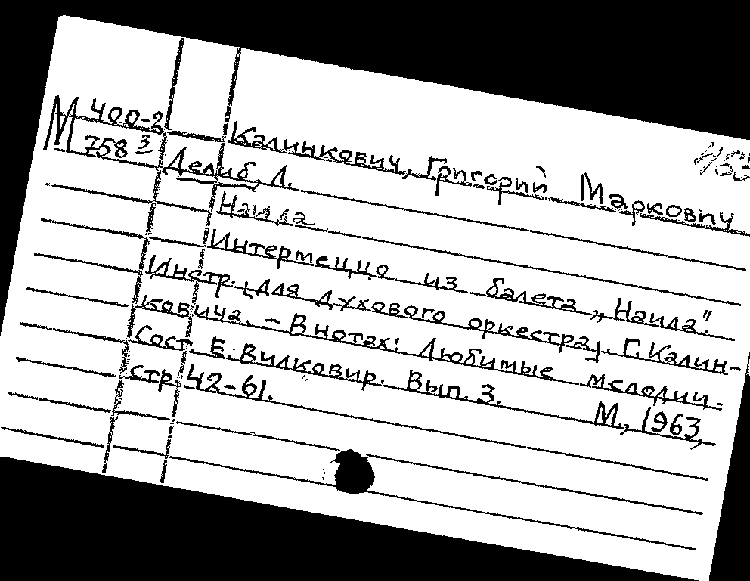 М 400-2
758 3
Калинкович, Григорий Маркович
Делиб, Л.
Наила
Интермеццо из балета „Наила".
Инстр. [для духового оркестра] Г. Калин-
ковича. - В нотах: Любимые мелодии.
Сост. Е. Вилковир. Вып. 3. М., 1963,
стр. 42-61.